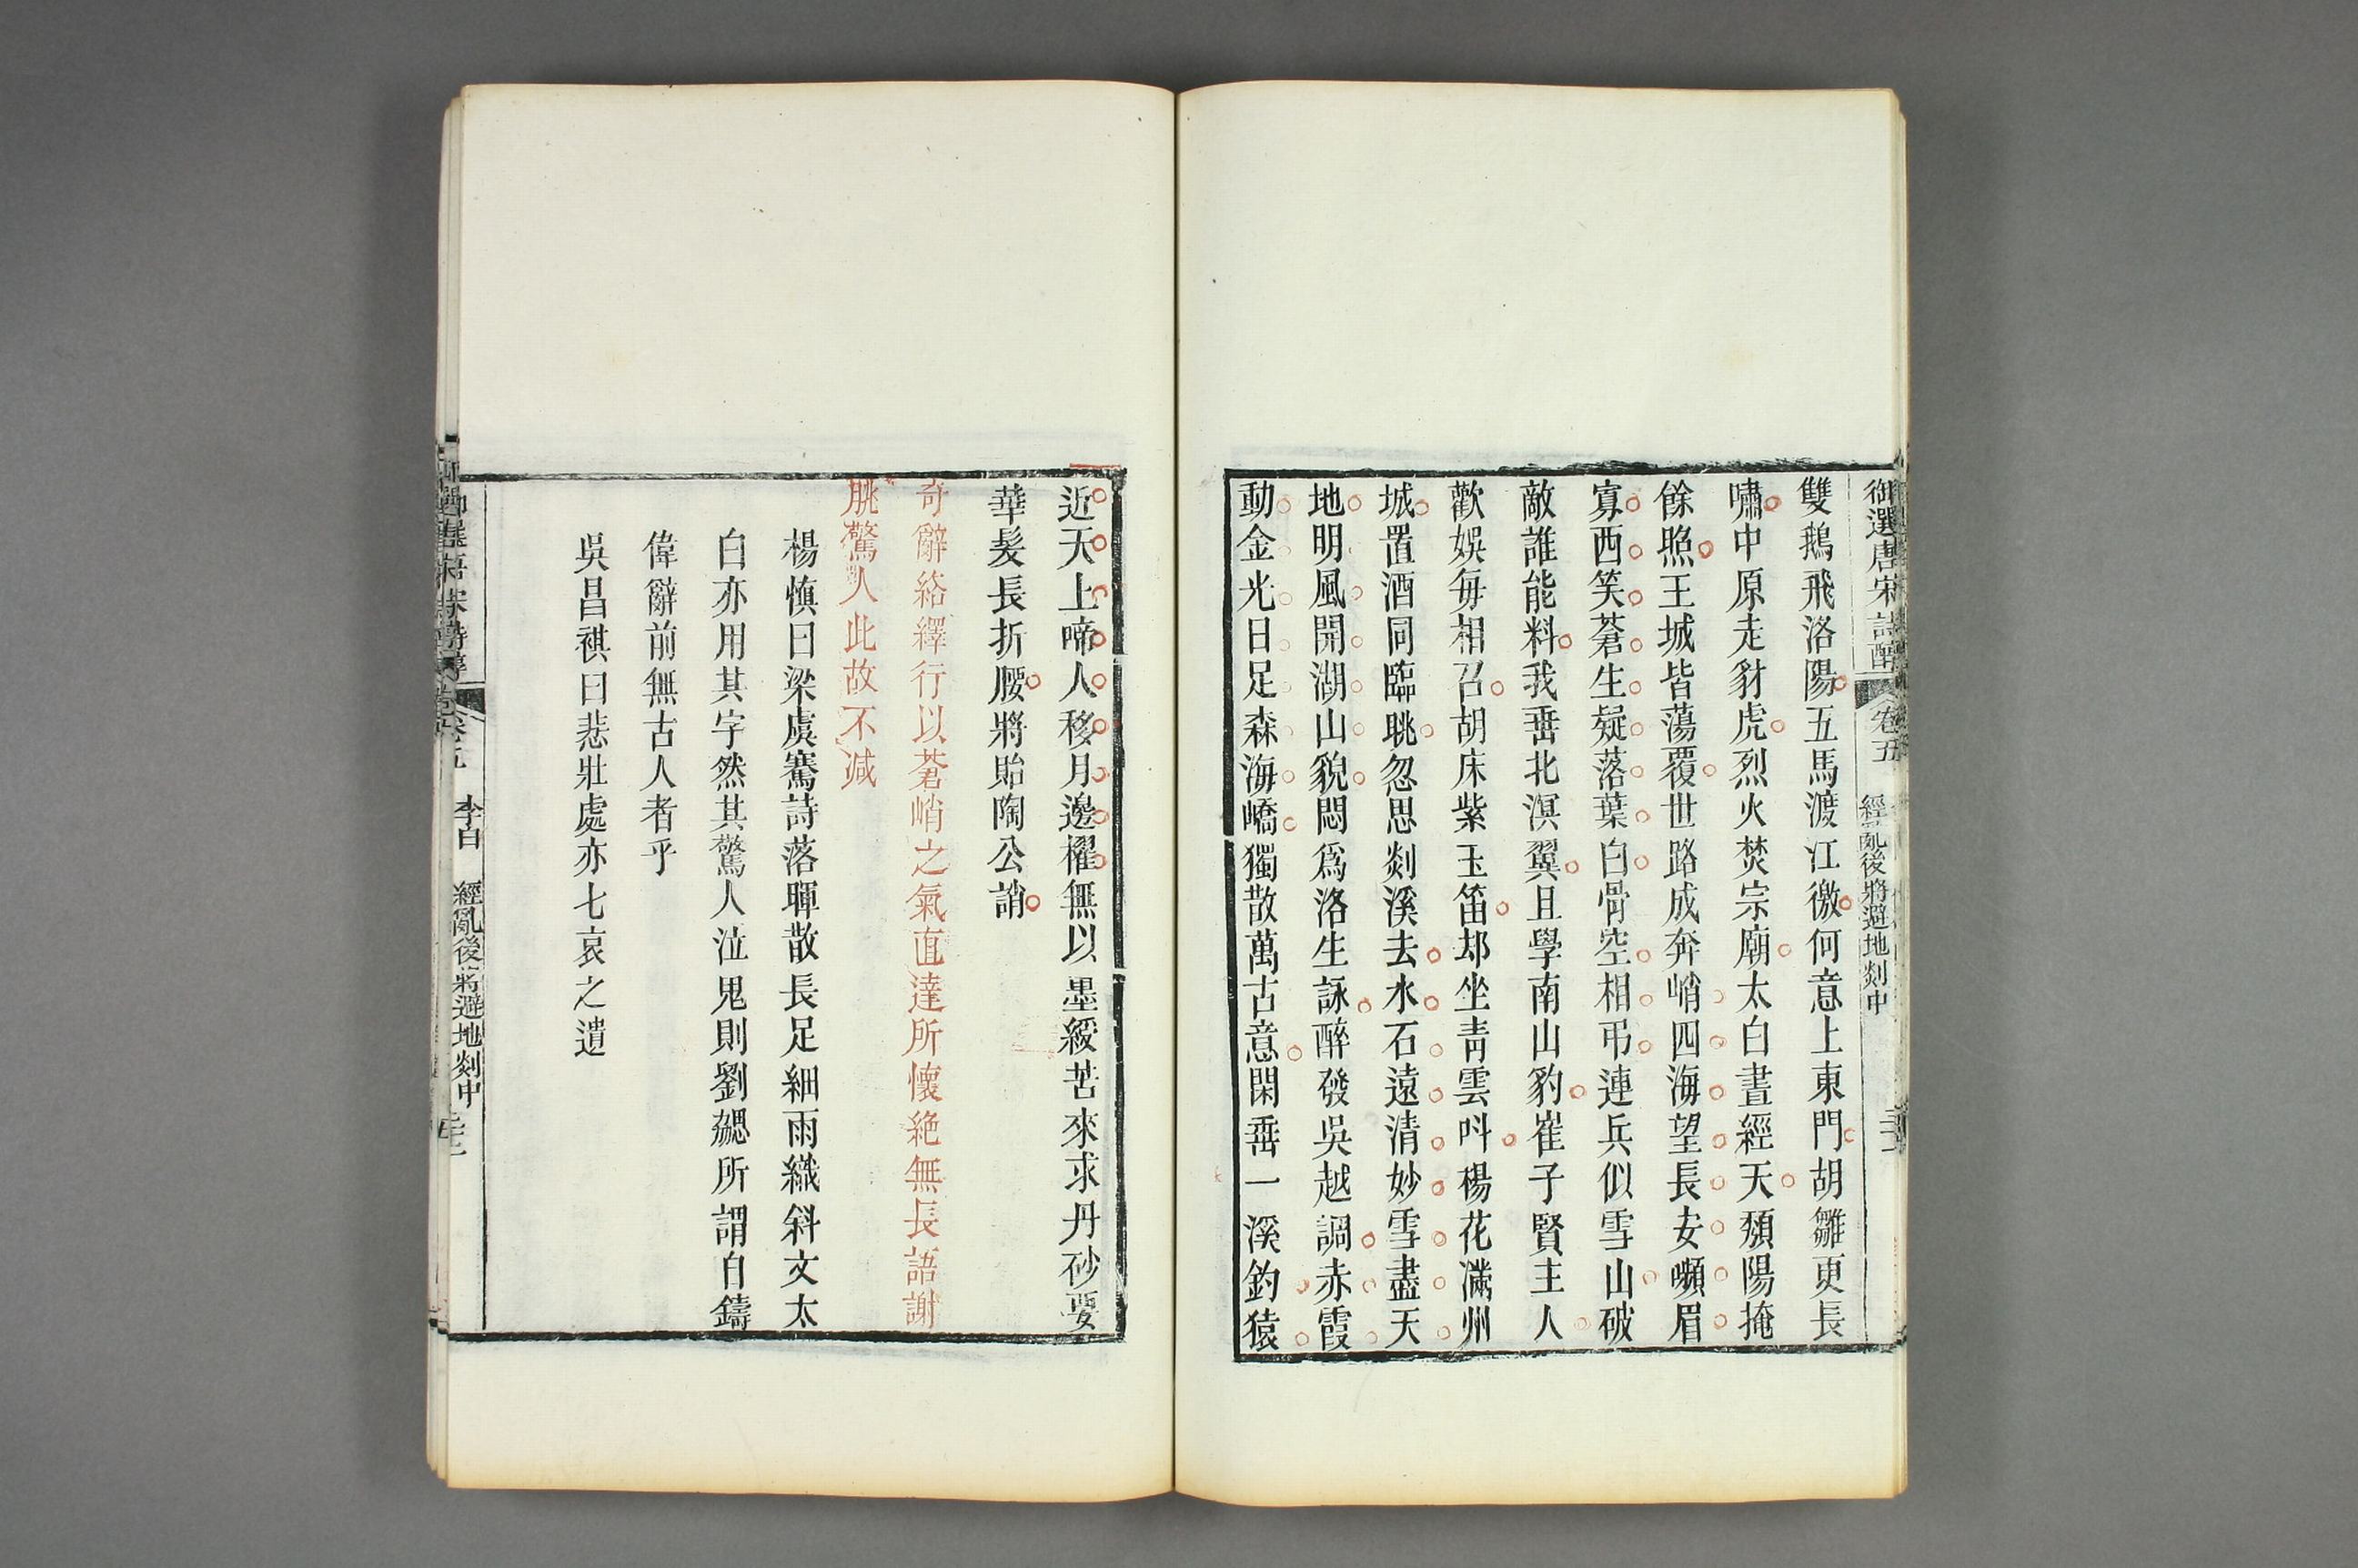 御選唐宋詩醇 卷五 經亂後將避地剡中
雙鵝飛洛陽五馬渡江徼何意上東門胡雛更長
嘯中原走豺虎烈火焚宗廟太白晝經天頹陽掩
餘照王城皆蕩覆世路成奔峭四海望長安嚬眉
寡西笑蒼生疑落葉白骨空相弔連兵似雪山破
敵誰能料我垂北溟翼且學南山豹崔子賢主人
歡娛每相召胡床紫玉笛却坐青雲叫楊花滿州
城置酒同臨眺忽思剡溪去水石遠清妙雪盡天
地明風開湖山貌悶爲洛生詠醉發吳越調赤霞
動金光日足森海嶠獨散萬古意閑垂一溪釣猿
近天上啼人移月邊櫂無以墨綬苦來求丹砂要
華髮長折腰將貽陶公誚
奇辭絡繹行以蒼峭之氣直達所懷絶無長語謝
朓驚人此故不減
楊慎曰梁虞騫詩落暉散長足細雨織斜文太
白亦用其字然其驚人泣鬼則劉勰所謂自鑄
偉辭前無古人者乎
吳昌祺曰悲壯處亦七哀之遺
李白 經亂後將避地剡中